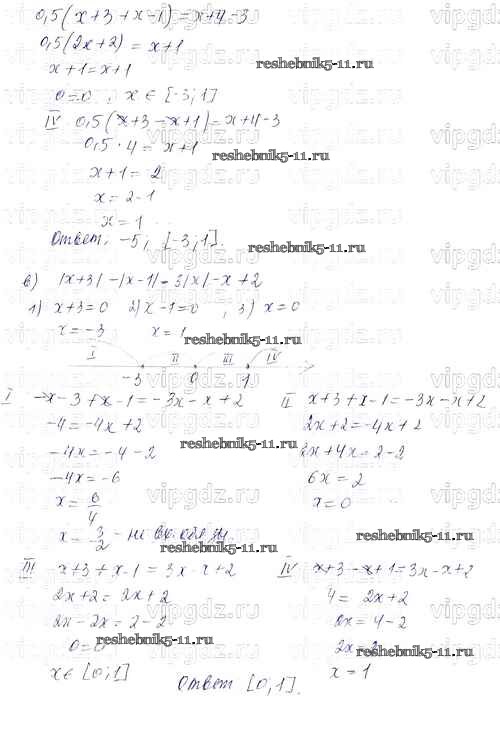 0,5(x+3+x-1)=x+4-3
0,5(2x+2)=x+1
x+1=x+1
0=0, x∈[-3;1]
IV 0,5(x+3-x+1)=x+4-3
0,5·4=x+1
x+1=2
x=2-1
x=1
Ответ: -5; [-3;1].
в) |x+3|-|x-1|=3|x|-x+2
1) x+3=0 2) x-1=0, 3) x=0
x=-3 x=1
I II III IV
-3 0 1
I -x-3+x-1=-3x-x+2
-4=-4x+2
-4x=-4-2
-4x=-6
x=6/4
x=3/2 - не
II x+3+x-1=-3x-x+2
2x+2=-4x+2
2x+4x=2-2
6x=2
x=0
III -x+3+x-1=3x-x+2
2x+2=2x+2
2x-2x=2-2
0=0
x∈[0;1]
IV x+3-x+1=3x-x+2
4=2x+2
2x=4-2
2x=2
x=1
Ответ [0,1].
reshebnik5-11.ru
reshebnik5-11.ru
reshebnik5-11.ru
reshebnik5-11.ru
reshebnik5-11.ru
reshebnik5-11.ru
reshebnik5-11.ru
reshebnik5-11.ru
reshebnik5-11.ru
vipgdz.ru